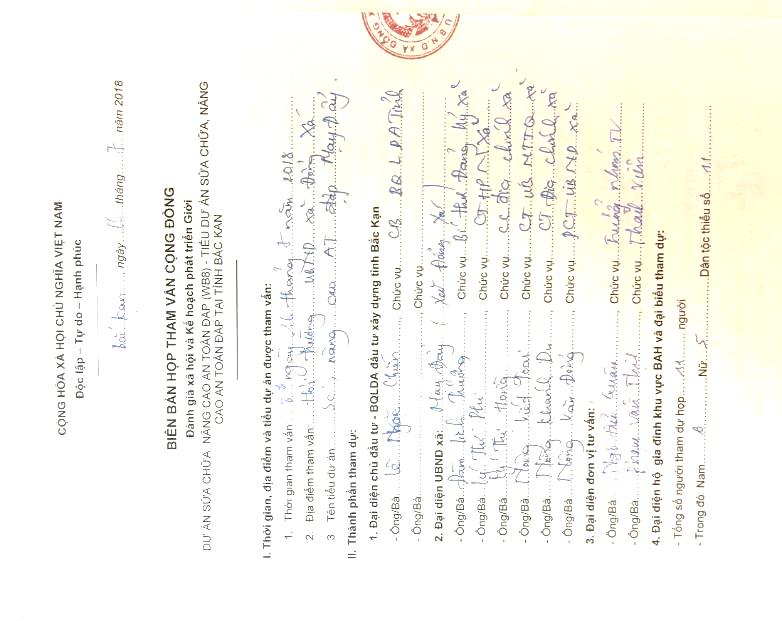 CỘNG HÒA XÃ HỘI CHỦ NGHĨA VIỆT NAM
Độc lập – Tự do – Hạnh phúc
Bắc Kạn, ngày 16 tháng 7 năm 2018
BIÊN BẢN HỌP THAM VẤN CỘNG ĐỒNG
Đánh giá xã hội và Kế hoạch phát triển Giới
DỰ ÁN SỬA CHỮA NÂNG CAO AN TOÀN ĐẬP (WB8) - TIỂU DỰ ÁN SỬA CHỮA, NÂNG
CAO AN TOÀN ĐẬP TẠI TỈNH BẮC KẠN
I. Thời gian, địa điểm và tiểu dự án được tham vấn:
1. Thời gian tham vấn ngày 16 tháng 7 năm 2018
2. Địa điểm tham vấn: Hội trường UBND xã Đổng Xá
3 Tên tiểu dự án SC, nâng cao AT đập Mạy Đẩy
II. Thành phần tham dự:
1. Đại diện chủ đầu tư - BQLDA đầu tư xây dựng tỉnh Bắc Kạn
- Ông/Bà Lê Ngọc Chiến Chức vụ CB BQLDA Tỉnh
- Ông/Bà Chức vụ
2. Đại diện UBND xã: Mạy Đẩy (Xã Đổng Xá)
- Ông/Bà Đàm Thương Chức vụ Bí thư Đảng ủy xã
- Ông/Bà Lý Thị Phu Chức vụ CT HPN xã
- Ông/Bà Thị Hồng Chức vụ CC địa chính xã
- Ông/Bà Nông Việt Toại Chức vụ CT UB MTTQ xã
- Ông/Bà Nông Khánh Dư Chức vụ CT Địa chính xã
- Ông/Bà Nông Văn Đông Chức vụ PCT UBND xã
3. Đại diện đơn vị tư vấn:
- Ông/Bà Ngô Quân Chức vụ Trưởng nhóm TV
- Ông/Bà Phạm Văn Chức vụ Thành viên
4. Đại diện hộ gia đình khu vực BAH và đại biểu tham dự:
- Tổng số người tham dự họp 11 người
- Trong đó Nam 6 Nữ 5 Dân tộc thiểu số 11
UBND XÃ ĐỔNG